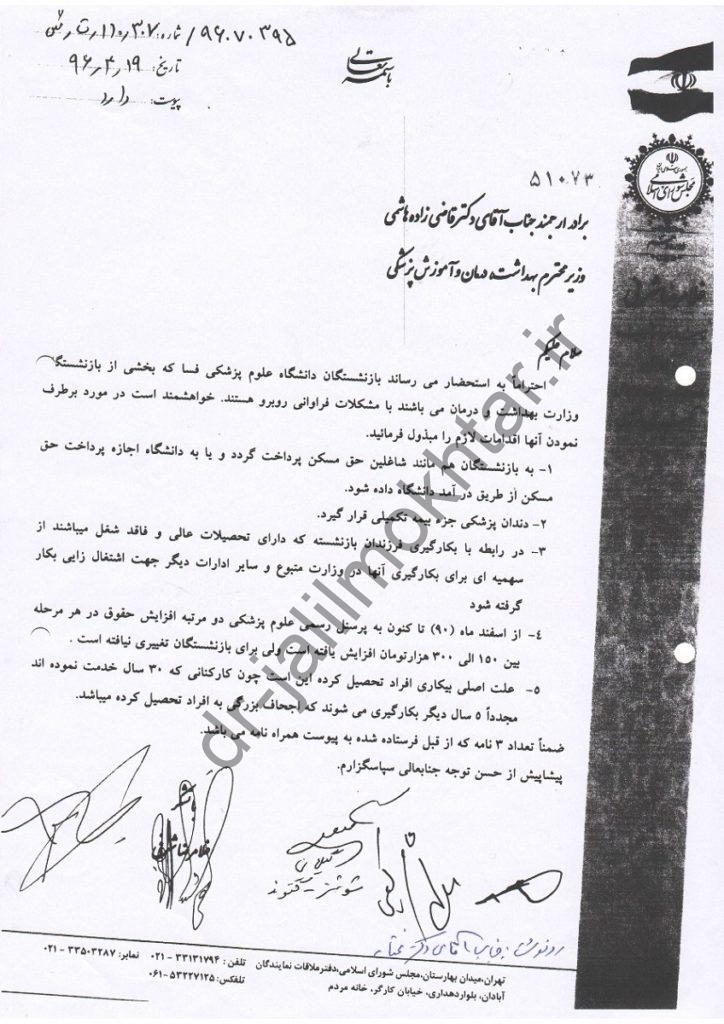 باسمه تعالی
شماره: ۳۰۷/۱۱۰/ /۹۶.۷۰.۳۹۵
تاریخ: ۹۶/۴/۱۹
پیوست: دارد
مجلس شورای اسلامی
۵۱۰۷۳
برادر ارجمند جناب آقای دکتر قاضی زاده هاشمی
وزیر محترم بهداشت، درمان و آموزش پزشکی
سلام علیکم
احتراماً به استحضار می رساند بازنشستگان دانشگاه علوم پزشکی فسا که بخشی از بازنشستگ
وزارت بهداشت و درمان می باشند با مشکلات فراوانی روبرو هستند. خواهشمند است در مورد برطرف
نمودن آنها اقدامات لازم را مبذول فرمائید.
۱- به بازنشستگان هم مانند شاغلین حق مسکن پرداخت گردد و یا به دانشگاه اجازه پرداخت حق
مسکن از طریق در آمد دانشگاه داده شود.
۲- دندان پزشکی جزء بیمه تکمیلی قرار گیرد.
۳- در رابطه با بکارگیری فرزندان بازنشسته که دارای تحصیلات عالی و فاقد شغل میباشند از
سهمیه ای برای بکارگیری آنها در وزارت متبوع و سایر ادارات دیگر جهت اشتغال زایی بکار
گرفته شود
۴- از اسفند ماه (۹۰) تا کنون به پرسنل رسمی علوم پزشکی دو مرتبه افزایش حقوق در هر مرحله
بین ۱۵۰ الی ۳۰۰ هزارتومان افزایش یافته است ولی برای بازنشستگان تغییری نیافته است .
۵- علت اصلی بیکاری افراد تحصیل کرده این است چون کارکنانی که ۳۰ سال خدمت نموده اند
مجدداً ۵ سال دیگر بکارگیری می شوند که اجحاف بزرگی به افراد تحصیل کرده میباشد.
ضمناً تعداد ۳ نامه که از قبل فرستاده شده به پیوست همراه نامه می باشد.
پیشاپیش از حسن توجه جنابعالی سپاسگزارم.
غلامرضا شرفی
شوشتر - گتوند
رونوشت: جناب آقای دکتر مختار
تهران،میدان بهارستان،مجلس شورای اسلامی،دفترملاقات نمایندگان تلفن: ۳۳۱۳۱۷۹۴ - ۰۲۱ نمابر: ۳۳۵۰۳۲۸۷ - ۰۲۱
آبادان، بلواردهداری، خیابان کارگر، خانه مردم تلفکس: ۵۳۲۲۷۱۲۵-۰۶۱
dr-jalilmokhtar.ir